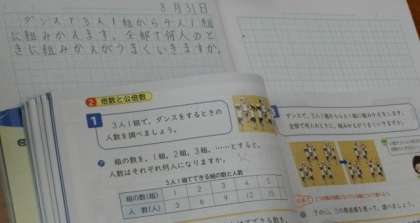 8月31日
ダンスで3人1組から4人1組
に組みかえます。全部で何人のと
きに組みかえがうまくいきますか。
2 倍数と公倍数
1
3人1組で、ダンスをするときの
人数を調べましょう。
組の数を、1組、2組、3組、……とすると、
人数はそれぞれ何人になりますか。
3人1組でできる組の数と人数
組の数(組) 1 2 3 4 5
人数(人) 3 6 9 12 15
1
ダンスで、3人1組から4人1組に組みかえをします。
全部で何人のときに、組みかえがうまくいきますか。